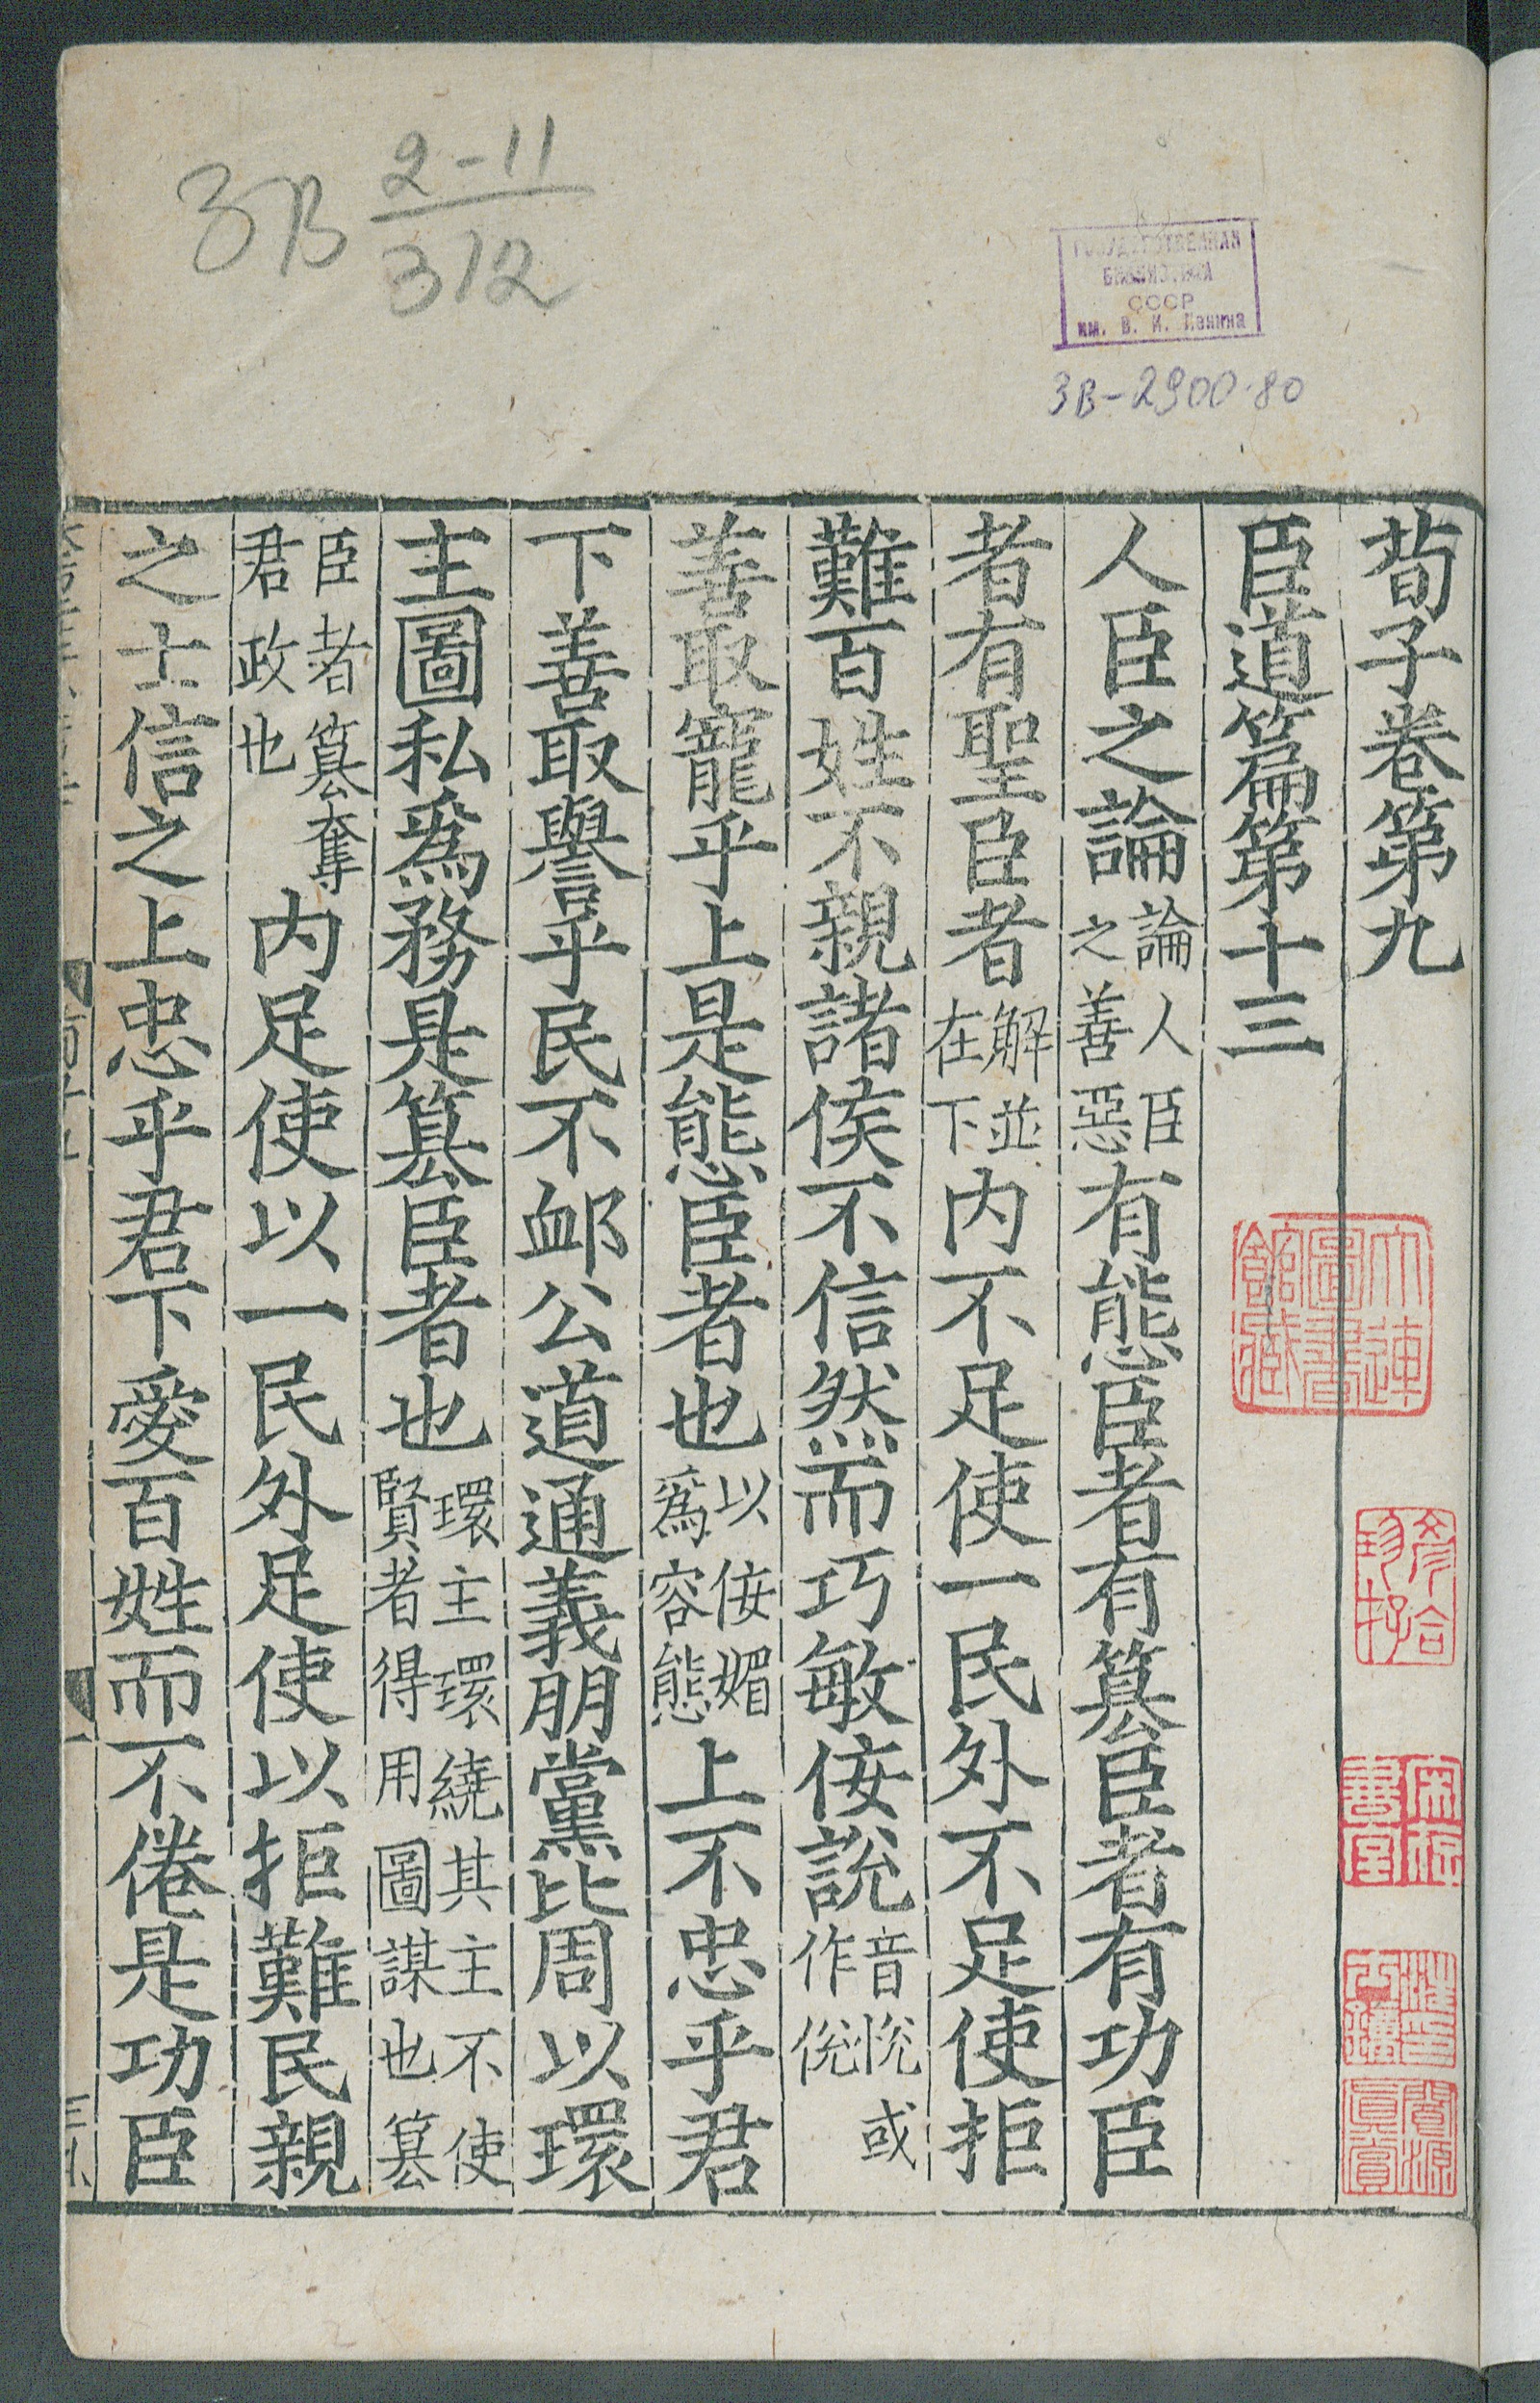 3В 2-11
312
ГОСУДАРСТВЕННАЯ
БИБЛИОТЕКА
СССР
им. В. И. Ленина
3В-2900-80
荀子卷第九
臣道篇第十三
人臣之論論人臣之善惡有態臣者有篡臣者有功臣
者有聖臣者解並在下内不足使一民外不足使拒
難百姓不親諸侯不信然而巧敏佞說音悅或作恱
善取寵乎上是態臣者也以佞媚爲容態上不忠乎君
下善取譽乎民不卹公道通義朋黨比周以環
主圖私爲務是篡臣者也環主環繞其主不使賢者得用圖謀也篡
臣者篡奪君政也内足使以一民外足使以拒難民親
之士信之上忠乎君下愛百姓而不倦是功臣
大連圖書館藏